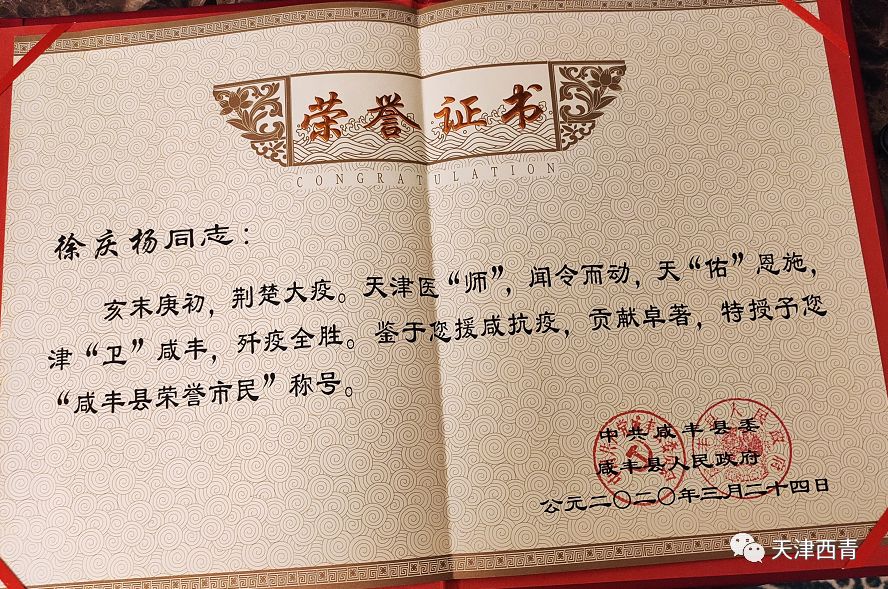 荣誉证书
CONGRATULATION
徐庆杨同志：
亥末庚初，荆楚大疫。天津医“师”，闻令而动，天“佑”恩施，
津“卫”咸丰，歼疫全胜。鉴于您援咸抗疫，贡献卓著，特授予您
“咸丰县荣誉市民”称号。
中共咸丰县委
咸丰县人民政府
公元二〇二〇年三月二十四日
天津西青